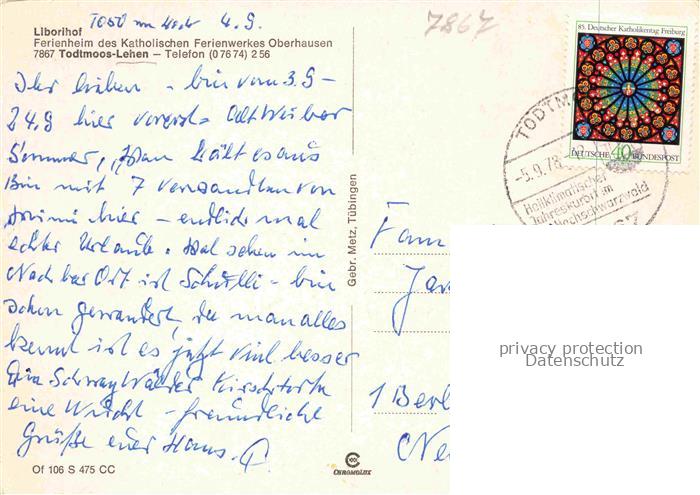 4.9.
7867
Liborihof
Ferienheim des Katholischen Ferienwerkes Oberhausen
7867 Todtmoos-Lehen – Telefon (0 76 74) 2 56
Ihr Lieben – bin vom 3.9 –
24.9 hier vorerst Altweiber
Sommer, man hält es aus
Bin mit 7 Verwandten von
hier – endlich mal
echter Urlaub. Mal sehen im
Nachbar Ort ist – bin
schon gewandert, da man alles
kennt ist es jetzt viel besser
Die Schwarzwälder Kirschtorte
eine Wucht – freundliche
Grüße euer Hans.
Of 106 S 475 CC
Gebr. Metz, Tübingen
CHROMOLUX
85. Deutscher Katholikentag Freiburg
DEUTSCHE 40 BUNDESPOST
TODTM
-5.9.78
Heilklimatischer
Jahreskurort im
Hochschwarzwald
Fam
1 Berl
privacy protection
Datenschutz